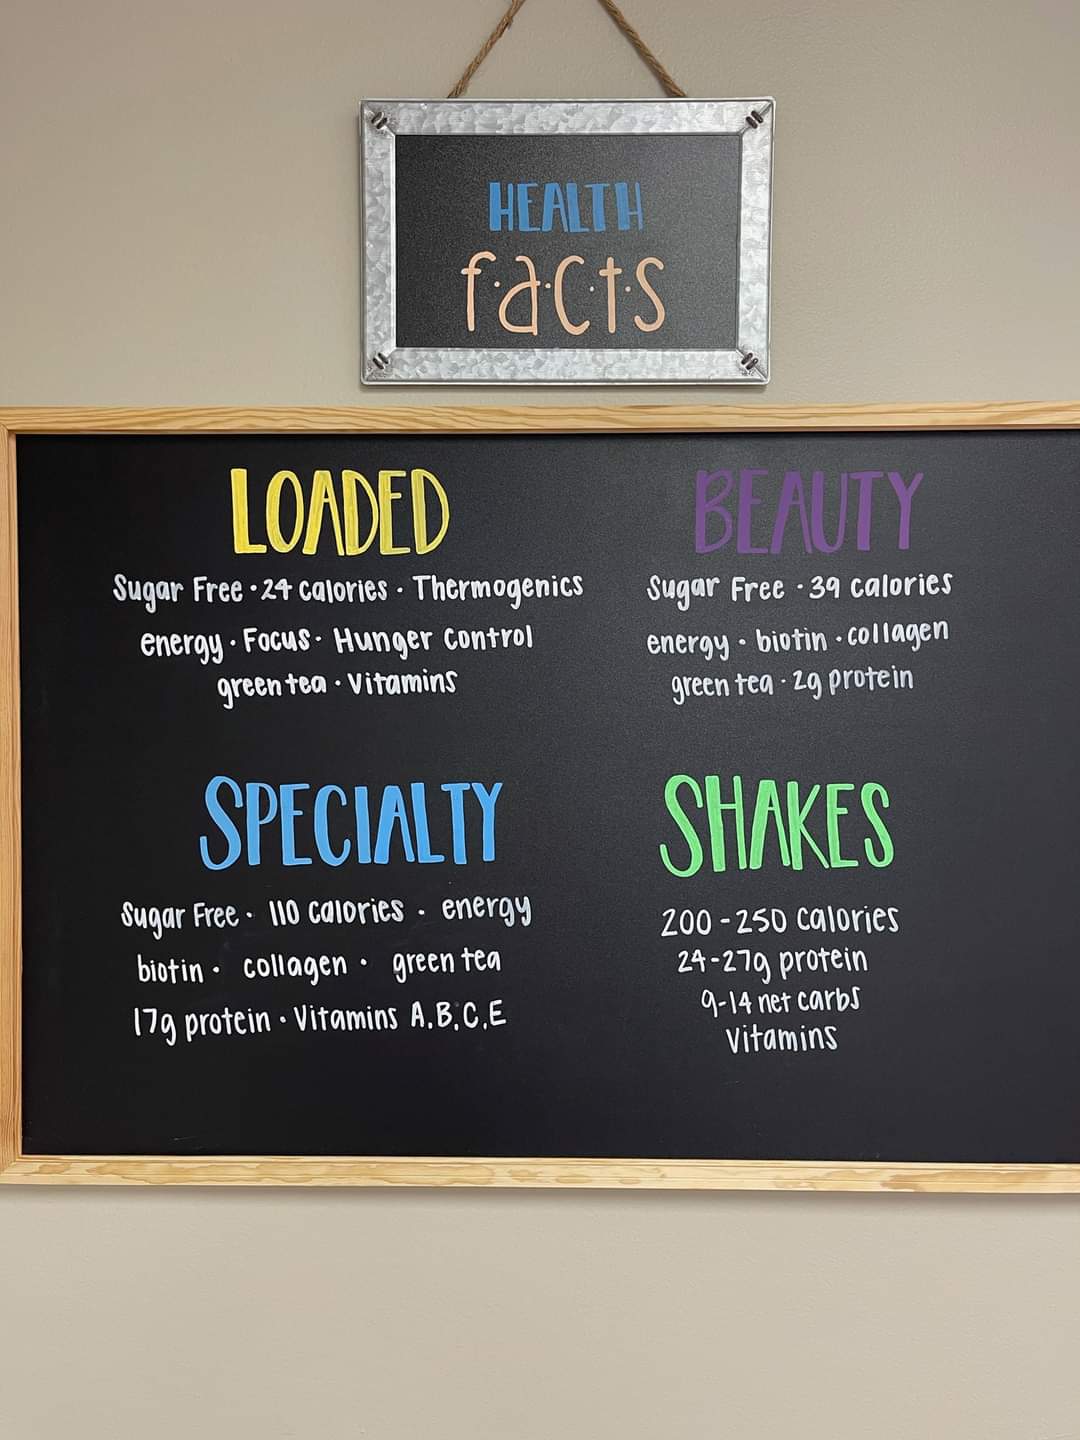 HEALTH
f·a·c·t·s
LOADED
Sugar Free · 24 calories · Thermogenics
energy · Focus · Hunger control
green tea · Vitamins
BEAUTY
Sugar Free · 39 calories
energy · biotin · collagen
green tea · 2g protein
SPECIALTY
Sugar Free · 110 calories · energy
biotin · collagen · green tea
17g protein · Vitamins A,B,C,E
SHAKES
200-250 calories
24-27g protein
9-14 net carbs
Vitamins